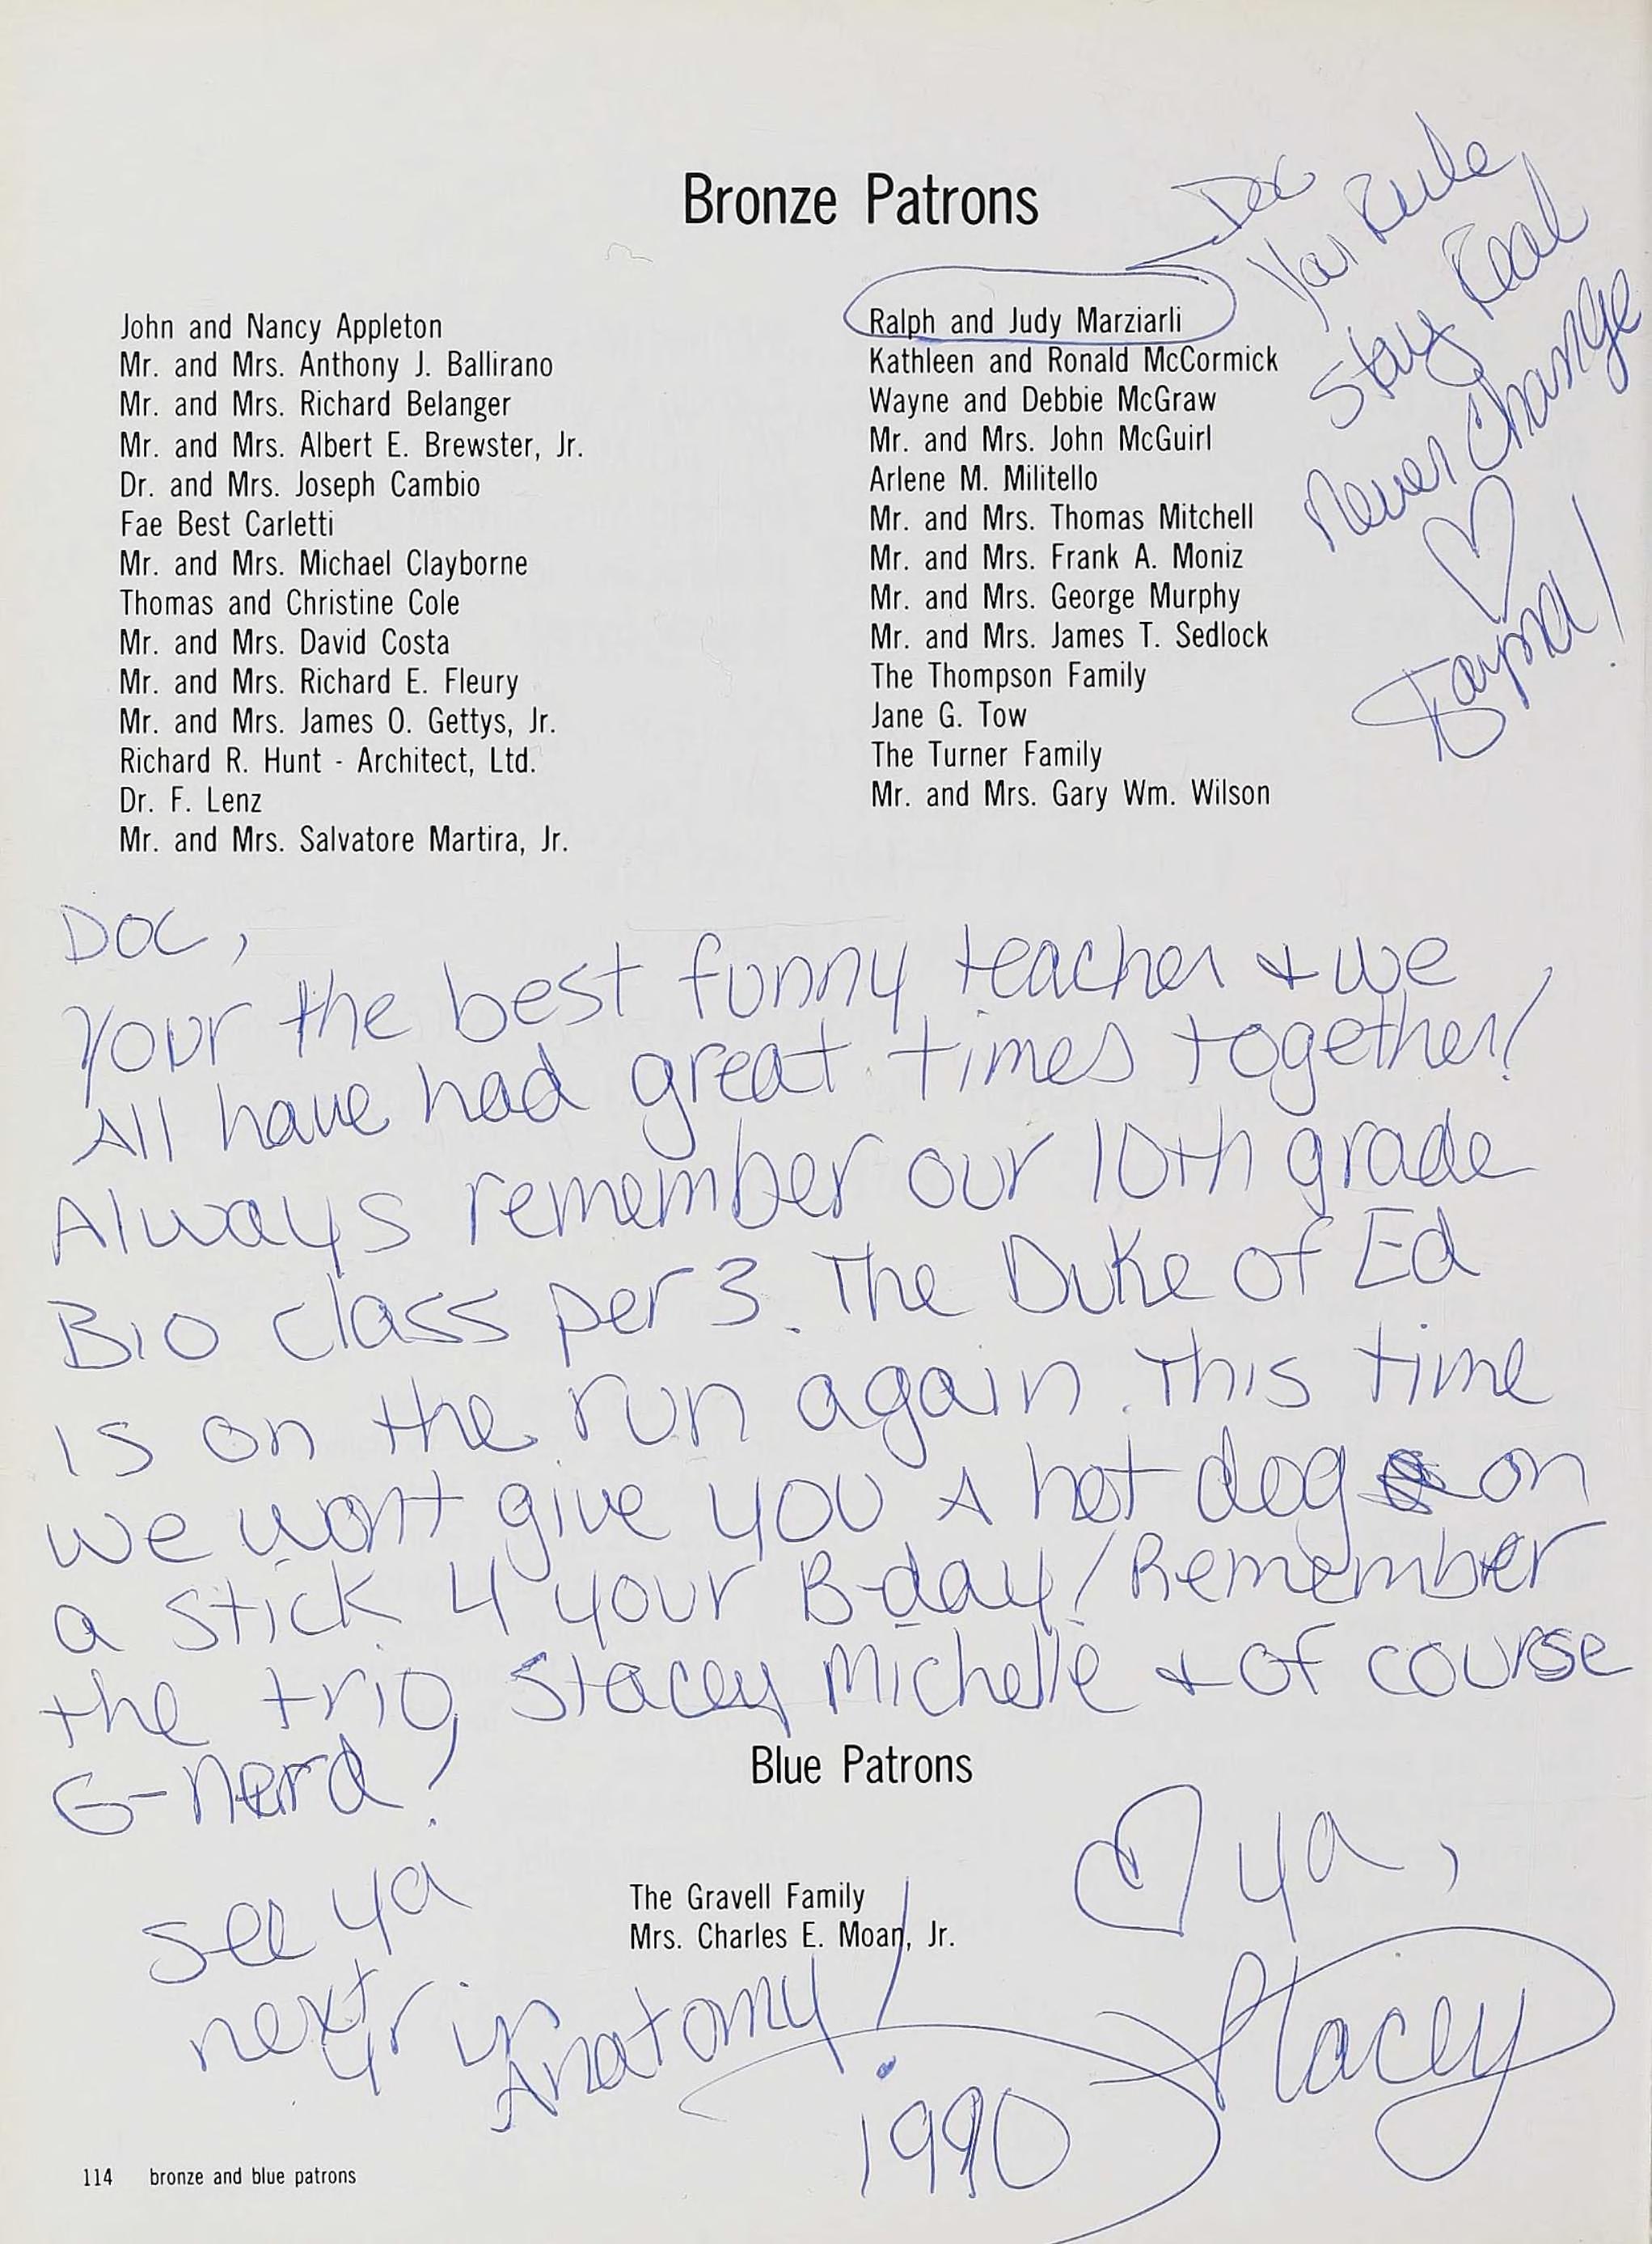 Bronze Patrons
John and Nancy Appleton
Mr. and Mrs. Anthony J. Ballirano
Mr. and Mrs. Richard Belanger
Mr. and Mrs. Albert E. Brewster, Jr.
Dr. and Mrs. Joseph Cambio
Fae Best Carletti
Mr. and Mrs. Michael Clayborne
Thomas and Christine Cole
Mr. and Mrs. David Costa
Mr. and Mrs. Richard E. Fleury
Mr. and Mrs. James O. Gettys, Jr.
Richard R. Hunt - Architect, Ltd.
Dr. F. Lenz
Mr. and Mrs. Salvatore Martira, Jr.
Ralph and Judy Marziarli
Kathleen and Ronald McCormick
Wayne and Debbie McGraw
Mr. and Mrs. John McGuirl
Arlene M. Militello
Mr. and Mrs. Thomas Mitchell
Mr. and Mrs. Frank A. Moniz
Mr. and Mrs. George Murphy
Mr. and Mrs. James T. Sedlock
The Thompson Family
Jane G. Tow
The Turner Family
Mr. and Mrs. Gary Wm. Wilson
Doc
You Rule,
Stay Real
Never Change
♡
Jayna!
Doc,
Your the best funny teacher & we
All have had great times together!
Always remember our 10th grade
Bio class per 3. The Duke of Ed
is on the run again. This time
we wont give you A hot dog on
a stick 4 your B-day! Remember
the trio, Stacey Michelle & of course
G-nerd!
Blue Patrons
The Gravell Family
Mrs. Charles E. Moan, Jr.
See ya
next yr in
Anatomy!
♡ ya,
Stacey
1990
114 bronze and blue patrons